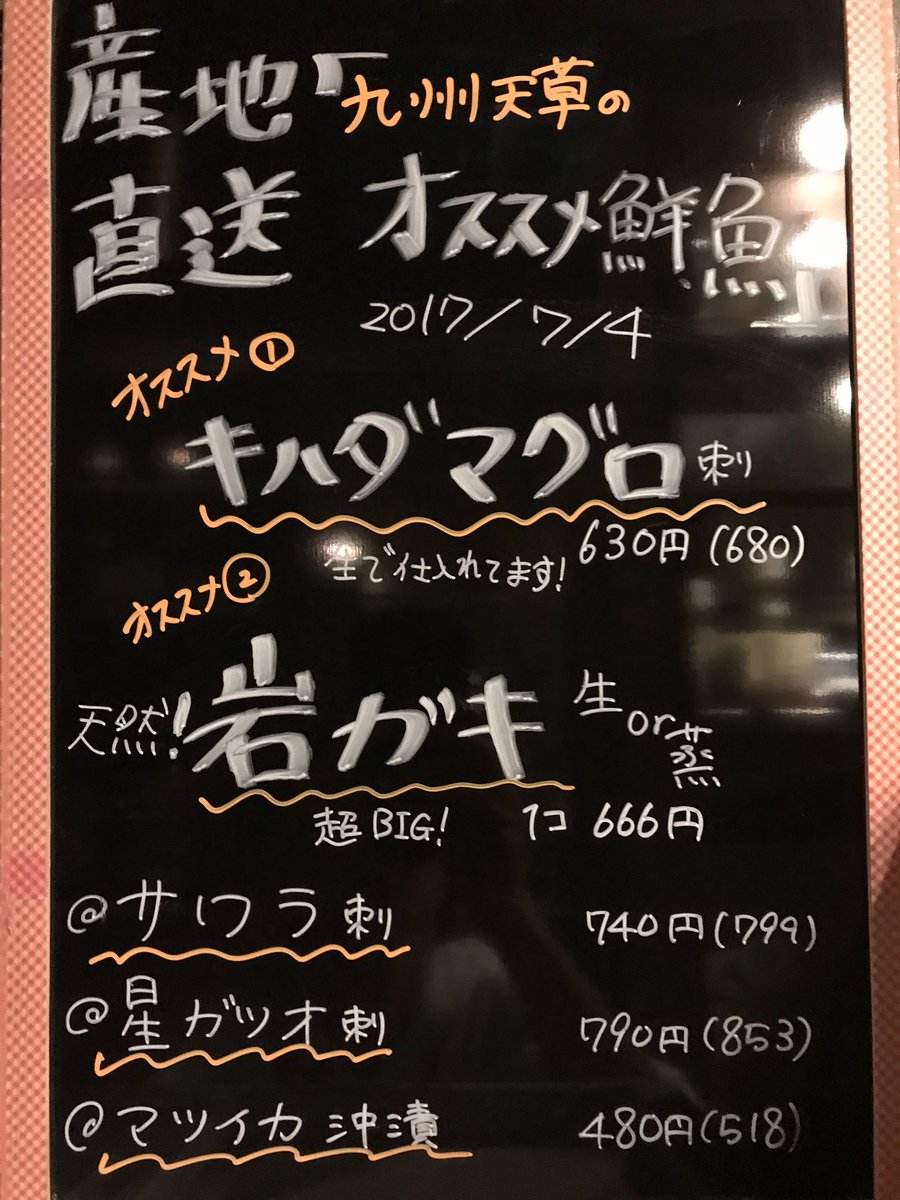 産地直送「九州天草の
オススメ鮮魚」
2017/7/4
オススメ①
キハダマグロ刺
630円(680)
生で仕入れてます!
オススメ②
天然!岩ガキ 生or蒸
超BIG! 1コ 666円
@サワラ刺 740円(799)
@星ガツオ刺 790円(853)
@マツイカ沖漬 480円(518)